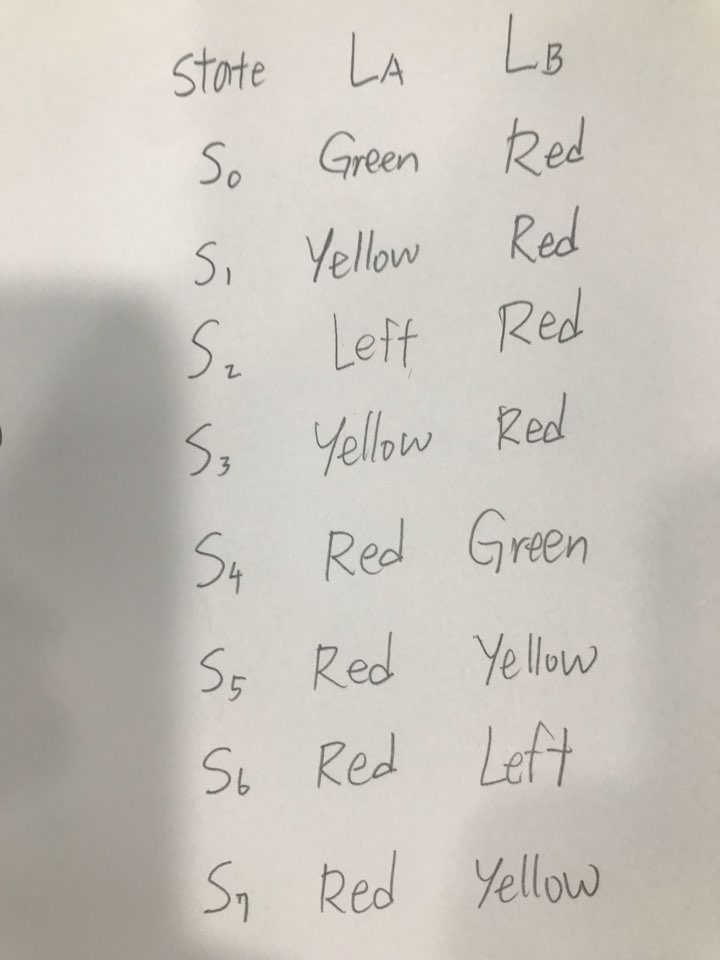 State LA LB
S0 Green Red
S1 Yellow Red
S2 Left Red
S3 Yellow Red
S4 Red Green
S5 Red Yellow
S6 Red Left
S7 Red Yellow